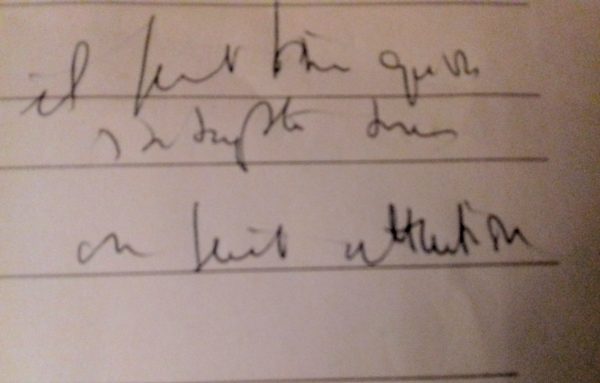 il faut bien qu'on
s'adapte donc
on fait attention